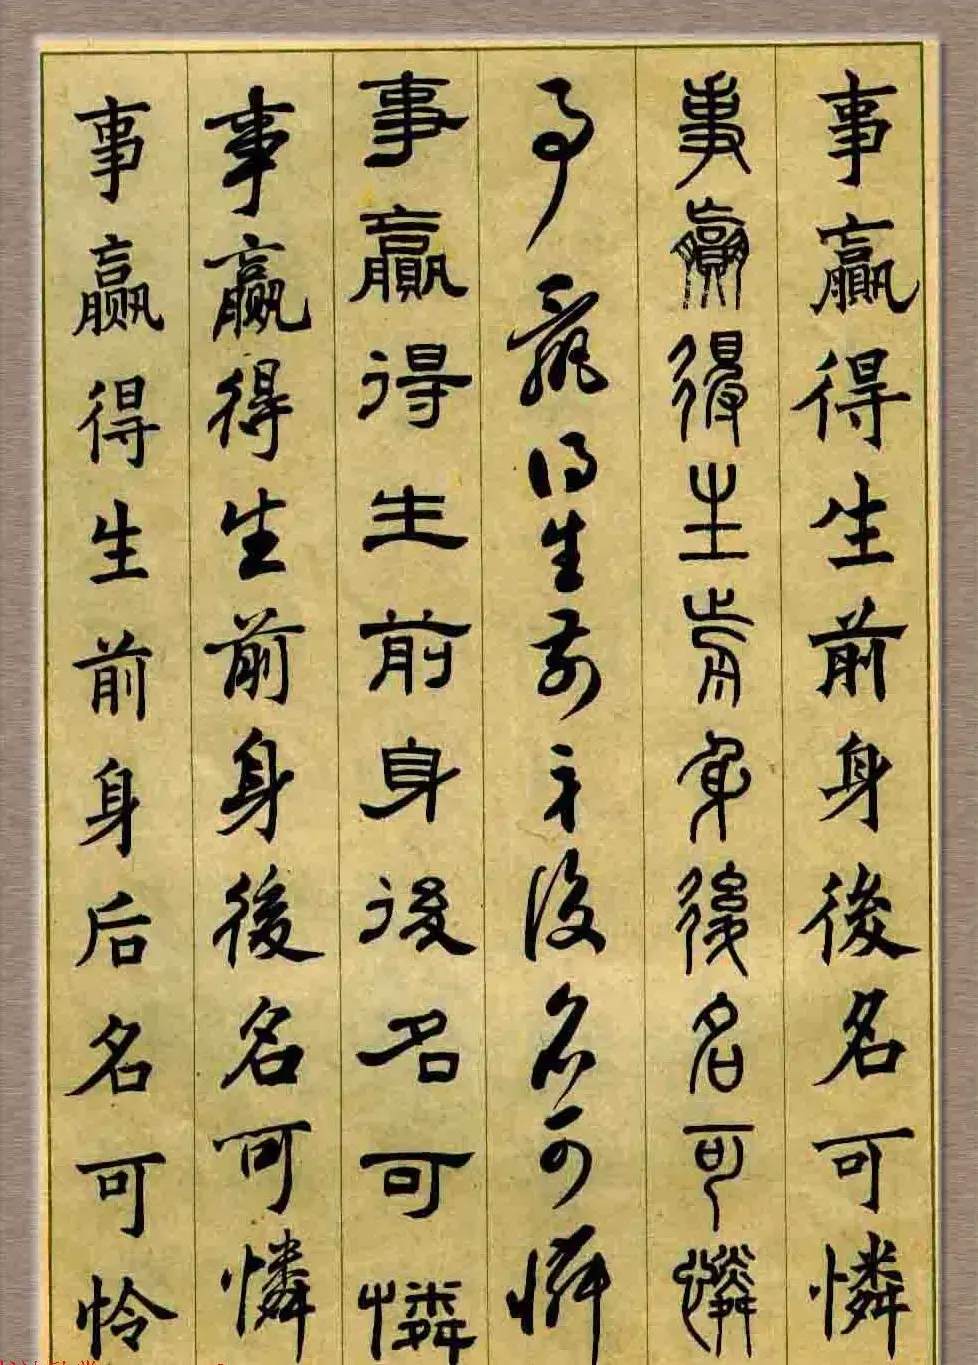 事贏得生前身後名可憐
事贏得生前身後名可憐
事贏得生前身後名可憐
事贏得生前身後名可憐
事贏得生前身後名可憐
事赢得生前身后名可怜